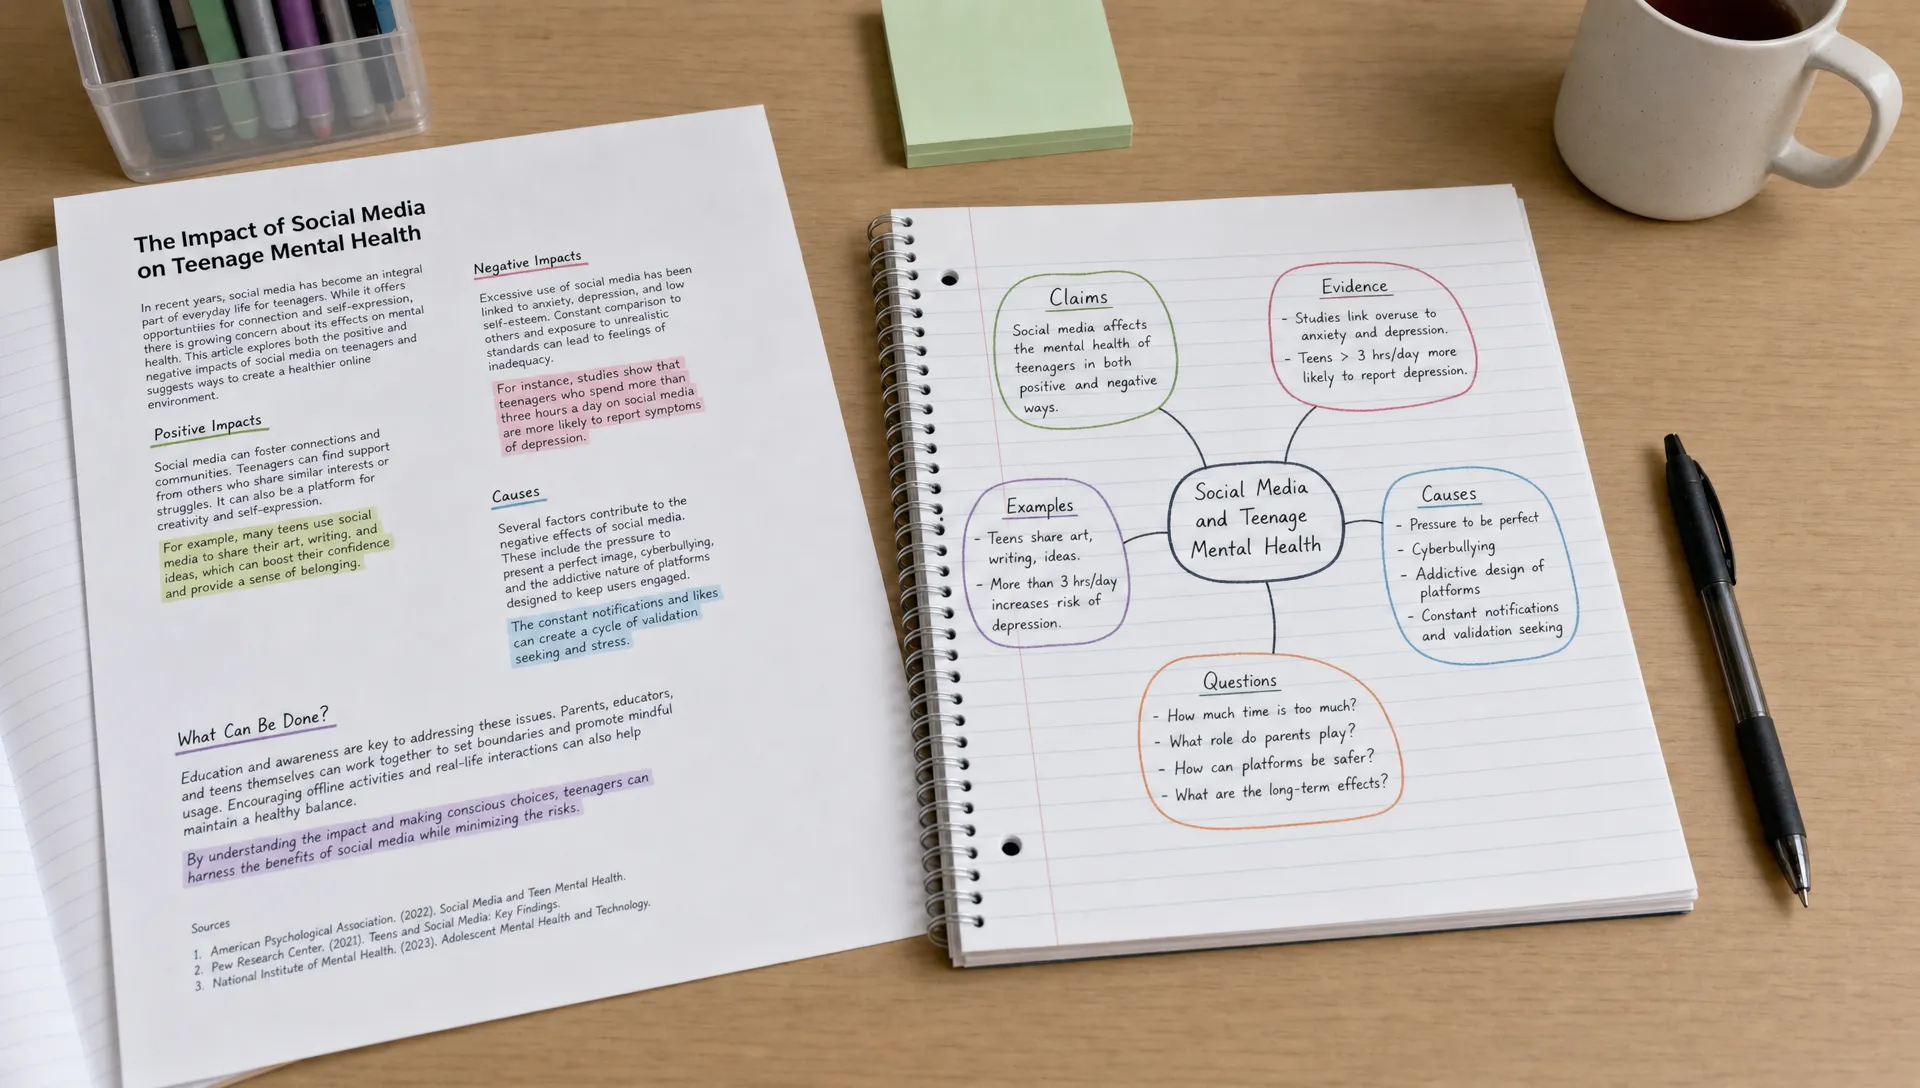 The Impact of Social Media
on Teenage Mental Health
In recent years, social media has become an integral
part of everyday life for teenagers. While it offers
opportuntiies for connection and self-expression,
there is growing concern about its effects on mental
health. This article explores both the positive and
negative impacts of social media on teenagers and
suggests ways to create a healthier online
environment.
Positive Impacts
Social media can foster connections and
communities. Teenagers can find support
from others who share similar interests or
struggles. It can also be a platform for
creativity and self-expression.
For example, many teens use social
media to share their art, writing, and
ideas, which can boost their confidence
and provide a sense of belonging.
Negative Impacts
Excessive use of social media has been
linked to anxiety, depression, and low
self-esteem. Constant comparison to
others and exposure to unrealistic
standards can lead to feelings of
inadequacy.
For instance, studies show that
teenagers who spend more than
three hours a day on social media
are more likely to report symptoms
of depression.
Causes
Several factors contribute to the
negative effects of social media.
These include the pressure to
present a perfect image, cyberbullying,
and the addictive nature of platforms
designed to keep users engaged.
The constant notifications and likes
can create a cycle of validation
seeking and stress.
What Can Be Done?
Education and awareness are key to addressing these issues. Parents, educators,
and teens themselves can work together to set boundaries and promote mindful
usage. Encouraging offline activities and real-life interactions can also help
maintain a healthy balance.
By understanding the impact and making conscious choices, teenagers can
harness the benefits of social media while minimizing the risks.
Sources
1. American Psychological Association. (2022). Social Media and Teen Mental Health.
2. Pew Research Center. (2021). Teens and Social Media: Key Findings.
3. National Institute of Mental Health. (2023). Adolescent Mental Health and Technology.
Claims
Social media affects
the mental health of
teenagers in both
positive and negative
ways.
Evidence
- Studies link overuse to
anxiety and depression.
- Teens > 3 hrs/day more
likely to report depression.
Examples
- Teens share art,
writing, ideas.
- More than 3 hrs/day
increases risk of
depression.
Social Media
and Teenage
Mental Health
Causes
- Pressure to be perfect
- Cyberbullying
- Addictive design of
platforms
- Constant notifications
and validation seeking
Questions
- How much time is too much?
- What role do parents play?
- How can platforms be safer?
- What are the long-term effects?